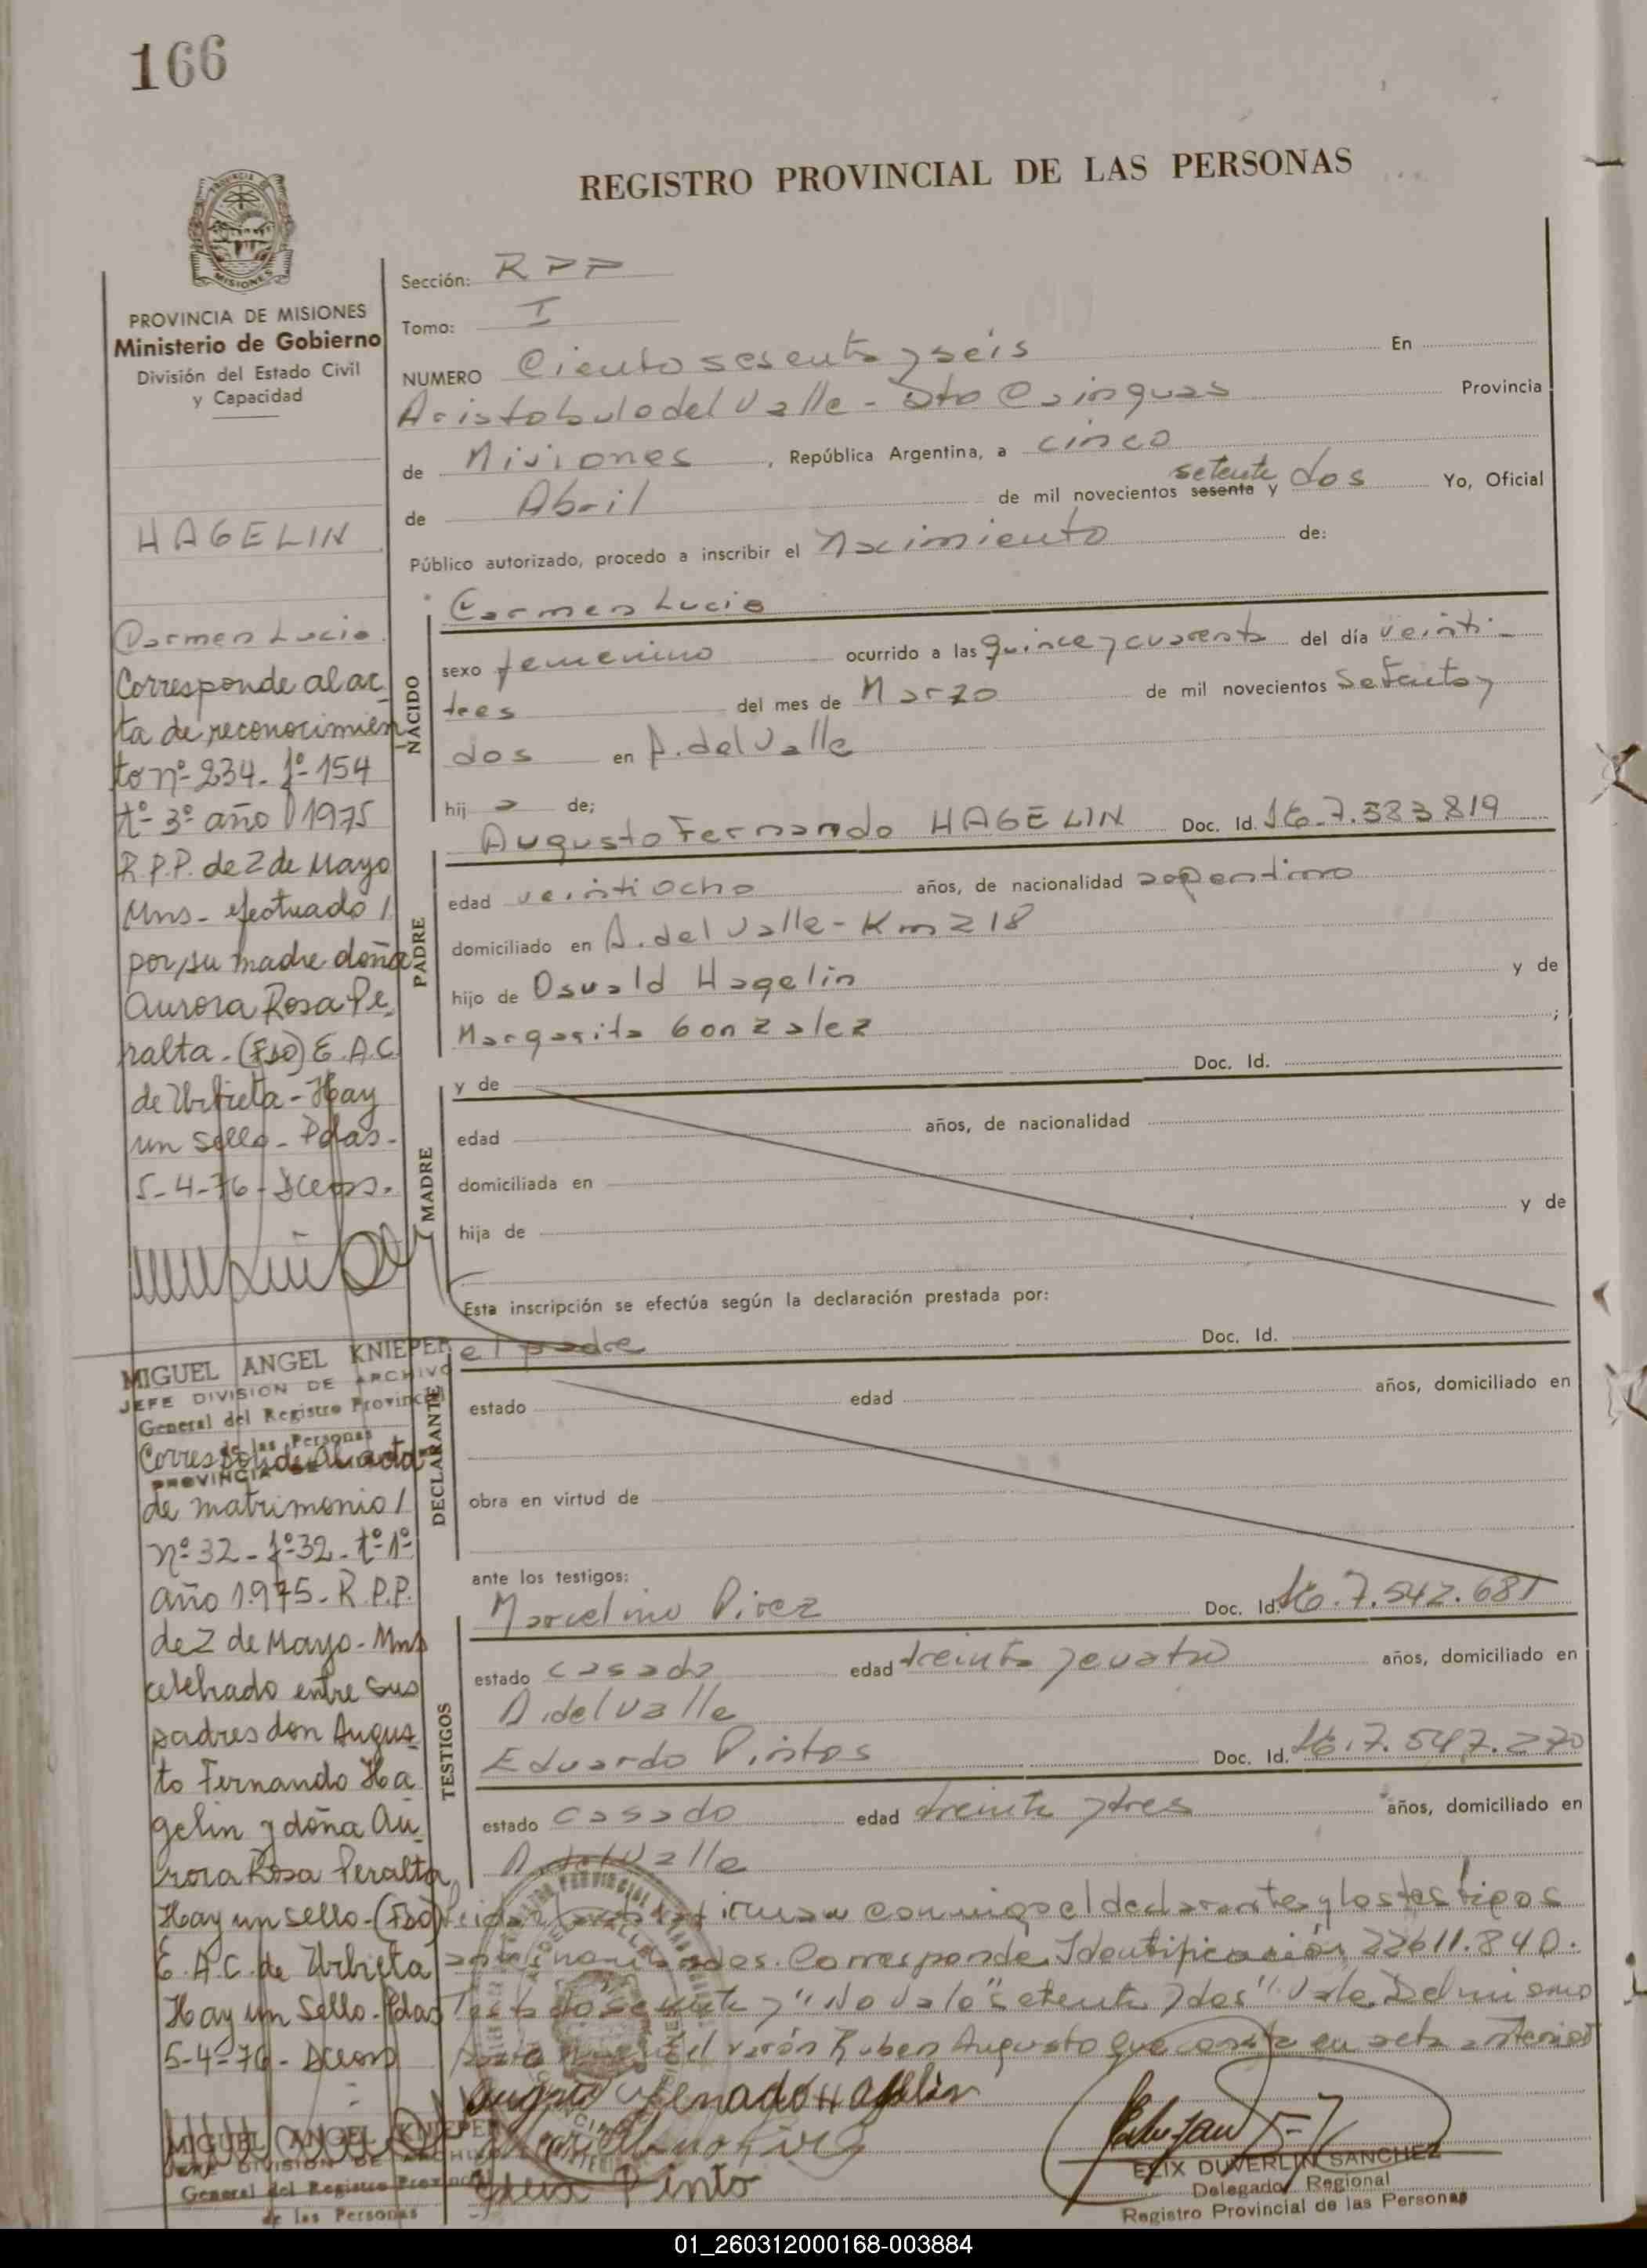 166
REGISTRO PROVINCIAL DE LAS PERSONAS
PROVINCIA DE MISIONES
Ministerio de Gobierno
División del Estado Civil
y Capacidad
HAGELIN
Carmen Lucia
Corresponde al ac
ta de reconocimien
to nº 234 - fº 154
tº 3º año 1975
R.P.P. de 2 de Mayo
Mns - efectuado /
por su madre doña
Aurora Rosa Pe
ralta - (Fdo) E.A.C.
de Urbieta - Hay
un sello - Pdas -
5-4-76 -
MIGUEL ANGEL KNIEPER
JEFE DIVISION DE ARCHIVO
General del Registro Provincial
de las Personas
PROVINCIA
Corresponde al acta
de matrimonio /
nº 32 - fº 32 - tº 1º
año 1.975 - R.P.P.
de 2 de Mayo - Mns
celebrado entre sus
padres don Augus
to Fernando Ha
gelin y doña Au
rora Rosa Peralta
Hay un sello - (Fdo)
E.A.C. de Urbieta
Hay un Sello - Pdas
5-4-76 -
MIGUEL ANGEL KNIEPER
JEFE DIVISION DE ARCHIVO
General del Registro Provincial
de las Personas
Sección: RPP
Tomo: I
NUMERO Ciento sesenta y seis En
Aristobulo del Valle - Dto Cainguas Provincia
de Misiones, República Argentina, a cinco
setenta
de Abril de mil novecientos sesenta y dos Yo, Oficial
Público autorizado, procedo a inscribir el Nacimiento de:
Carmen Lucia
NACIDO
sexo femenino ocurrido a las quince y cuarenta del día veinti-
tres del mes de Marzo de mil novecientos Setenta y
dos en A. del Valle
hij a de;
Augusto Fernando HAGELIN Doc. Id. 16-7.583.819
PADRE
edad veintiocho años, de nacionalidad argentino
domiciliado en A. del Valle - Km 218
hijo de Osvald Hagelin y de
Margarita Gonzalez ;
y de Doc. Id.
MADRE
edad años, de nacionalidad
domiciliada en
hija de y de
Esta inscripción se efectúa según la declaración prestada por:
el padre Doc. Id.
DECLARANTE
estado edad años, domiciliado en
obra en virtud de
ante los testigos:
Marcelino Pirez Doc. Id. 16.7.542.681
TESTIGOS
estado casado edad treinta y cuatro años, domiciliado en
A. del Valle
Eduardo Pintos Doc. Id. 16.7.547.270
estado casado edad treinta y tres años, domiciliado en
A. del Valle
Leida firman conmigo el declarante y los testigos
nombrados. Corresponde Identificación 22611.840.
Testado sesenta y "No vale" setenta y dos" Vale. Del mismo
parto nació el varón Ruben Augusto que consta en acta anterior
Augusto Fernando Hagelin
Pinto
FELIX DUVERLIN SANCHEZ
Delegado Regional
Registro Provincial de las Personas
01_260312000168-003884